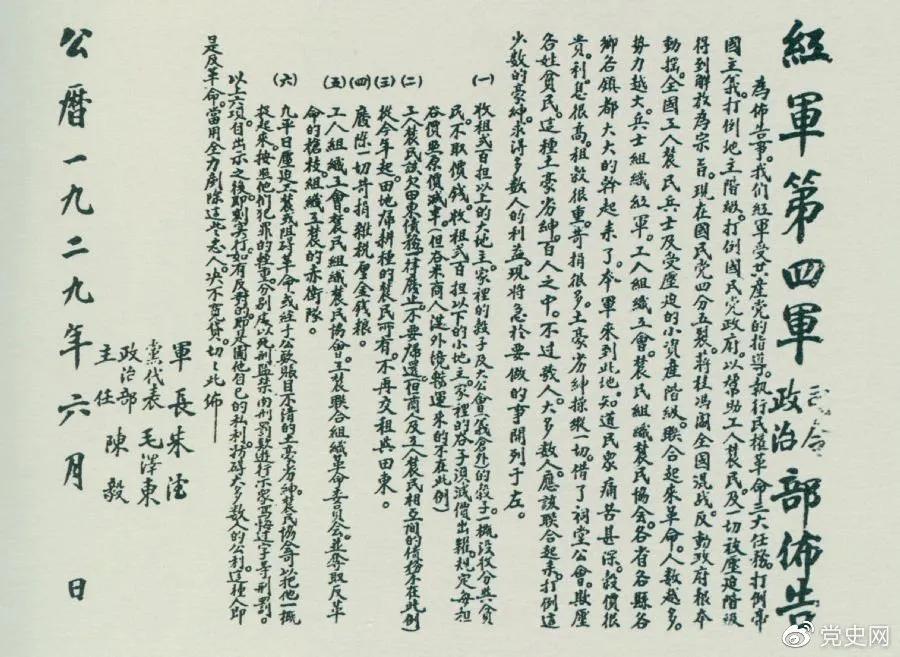 紅軍第四軍司令政治部佈告
為佈告事。我們紅軍受共產党的指導。执行民權革命三大任務。打倒帝
國主義。打倒地主階級。打倒國民党政府。以幫助工人農民。及一切被壓迫階級
得到解放為宗旨。現在國民党四分五裂。蔣桂馮閻全國混战。反動政府根本
動搖。全國工人農民兵士及受壓迫的小資產階級。聯合起來革命。人數越多。
勢力越大。兵士組織紅軍。工人組織工會。農民組織農民協会。各省各縣各
鄉各鎮都大大的幹起來了。本軍來到此地。知道民衆痛苦甚深。穀價很
貴。利息很高。租穀很重。苛捐很多。土豪劣紳操縱一切。借了祠堂公會。欺壓
各姓貧民。這種土豪劣紳。百人之中。不过数人。大多數人。應該联合起來。打倒這
少數的豪紳。求得多数人的利益。現將急於要做的事開列于左。
(一) 收租弍百担以上的大地主。家裡的穀子及大公會(義倉外)的穀子一概沒收分與貧
民。不取價钱。收租弍百担以下的小地主。家裡的谷子須減價出糶。規定每担
谷價照原價減半。(但谷米商人從外境轉運來的不在此例)
(二) 工人農民該欠田東債務一律廢止。不要歸還。(但商人及工人農民相互間的債務不在此例)
(三) 從今年起。田地歸耕種的農民所有。不再交租與田東。
(四) 廢除一切苛捐雜税厘金钱粮。
(五) 工人組織工會。農民組織農民協會。工農聯合組織革命委員会。並奪取反革
命的槍枝組織工農的赤衛隊。
(六) 凡平日壓迫工農或阻碍革命或經手公款賬目不清的土豪劣紳。農民協会可以把他一概
捉起來。按照他们犯罪的輕重。分別处以死刑監禁肉刑罰款遊行示衆寫悔过字等刑罰。
以上六項自出示之後。即刻实行。如有反對的。即是圖他自己的私利。妨碍大多数人的公利。這種人即
是反革命。當用全力剷除這些惡人。決不寬貸。切切此佈
軍長 朱德
黨代表 毛澤東
政治部主任 陳毅
公曆一九二九年六月 日
党史网